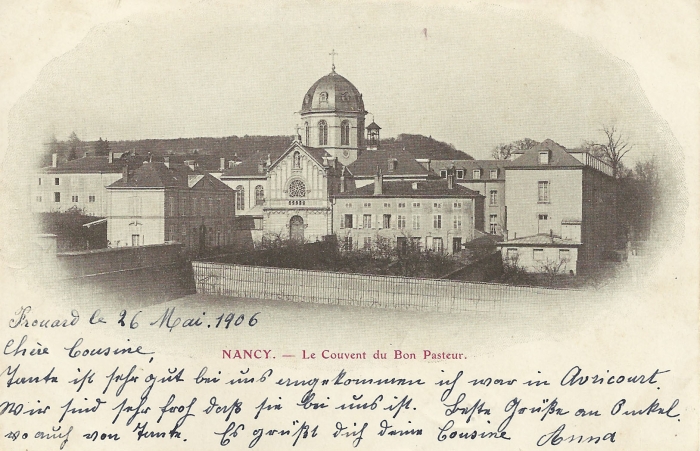 Frouard le 26 Mai. 1906
Chère Cousine,
NANCY. — Le Couvent du Bon Pasteur.
Tante ist sehr gut bei uns angekommen ich war in Avricourt.
Wir sind sehr froh daß sie bei uns ist. Beste Grüße an Onkel,
wo auch von Tante. Es grüßt dich deine Cousine Anna